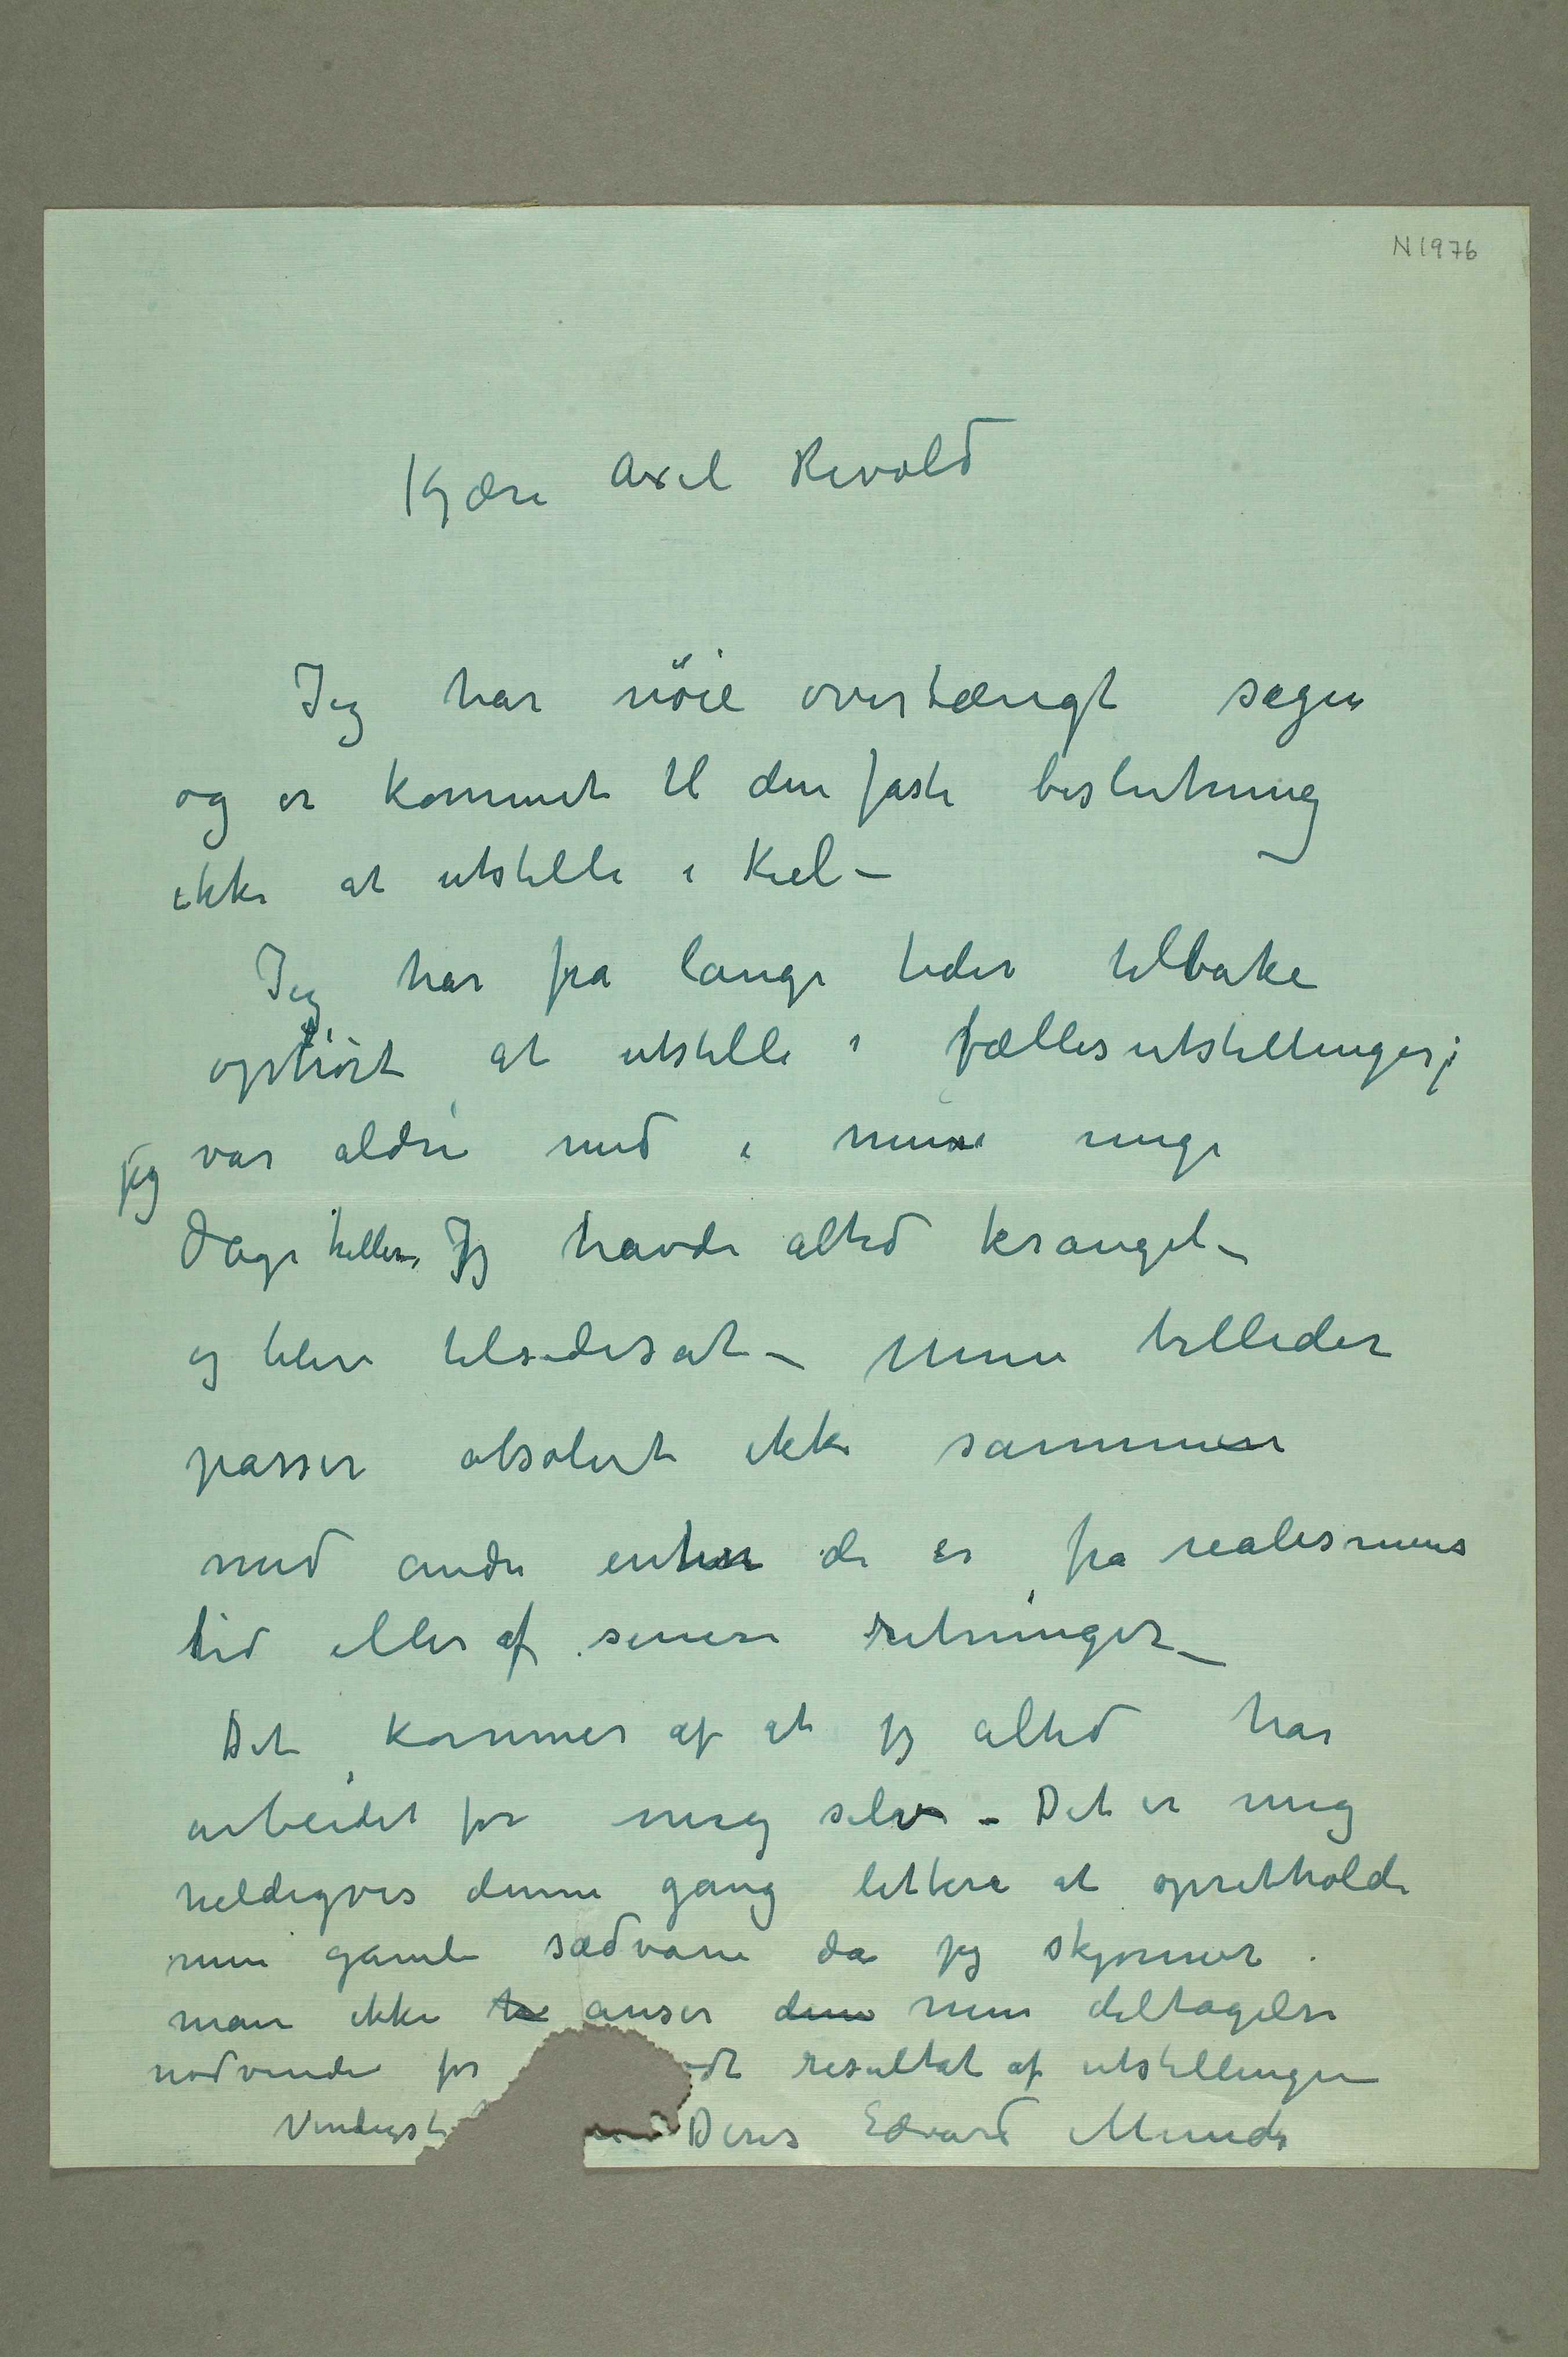 N1976
Kjære Axel Revold
Jeg har nöie overtængt sagen
og er kommet til den faste beslutning
ikke at utstille i Kiel –
Jeg har fra lange tider tilbake
ophørt at utstille i fællesutstillinger;
jeg var aldri med i mine unge
Dage heller, Jeg havde altid krangel –
og blev tilsidesat – Mine billeder
passer absolut ikke sammen
med andre enten de er fra realismens
tid eller af senere retninger –
Det kommer af at jeg altid har
arbeidet for meg selv – Det er mig
heldigvis denne gang lettere at opretholde
min gamle sædvane da jeg skjønner
man ikke anser min deltagelse
nødvendi for odt resultat af utstillingen
Venligst Deres Edvard Munch